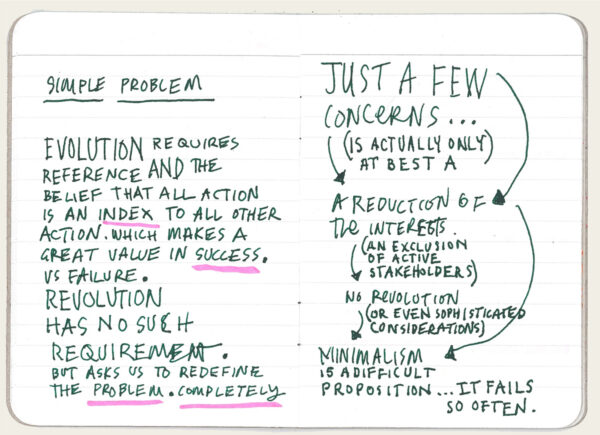 SIMPLE PROBLEM
EVOLUTION REQUIRES
REFERENCE AND THE
BELIEF THAT ALL ACTION
IS AN INDEX TO ALL OTHER
ACTION. WHICH MAKES A
GREAT VALUE IN SUCCESS.
VS FAILURE.
REVOLUTION
HAS NO SUCH
REQUIREMENT.
BUT ASKS US TO REDEFINE
THE PROBLEM. COMPLETELY
JUST A FEW
CONCERNS...
(IS ACTUALLY ONLY)
AT BEST A
A REDUCTION OF
the INTERESTS.
(AN EXCLUSION
OF ACTIVE
STAKEHOLDERS)
NO REVOLUTION
(OR EVEN SOPHISTICATED
CONSIDERATIONS)
MINIMALISM
IS A DIFFICULT
PROPOSITION... IT FAILS
SO OFTEN.